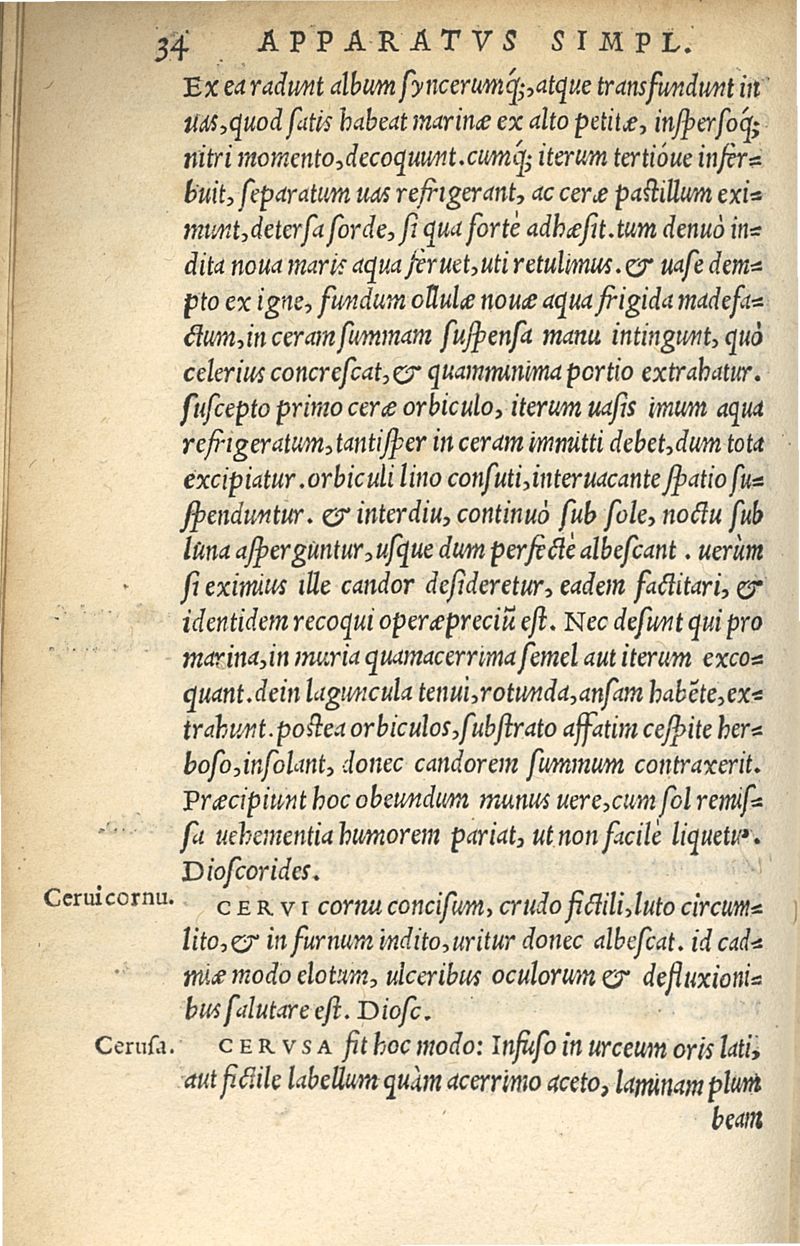 34 APPARATVS SIMPL.
Ex ea radunt album syncerumq́;, atque transfundunt in
uas, quod satis habeat marinæ ex alto petitæ, insperso q́;
nitri momento, decoquunt. cumq́; iterum tertióue infer-
buit, separatum uas refrigerant, ac ceræ pastillum exi-
munt, detersa sorde, si qua fortè adhæsit. tum denuò in-
dita noua maris aqua feruet, uti retulimus. & uase dem-
pto ex igne, fundum ollulæ nouæ aqua frigida madefa-
ctum, in ceram summam suspensa manu intingunt, quò
celerius concrescat, & quamminima portio extrahatur.
suscepto primo ceræ orbiculo, iterum uasis imum aqua
refrigeratum, tantisper in ceram immitti debet, dum tota
excipiatur. orbiculi lino consuti, interuacante spatio su-
spenduntur. & interdiu, continuò sub sole, noctu sub
luna asperguntur, usque dum perfectè albescant. uerùm
si eximius ille candor desideretur, eadem factitari, &
identidem recoqui operæpreciũ est. Nec desunt qui pro
marina, in muria quamacerrima semel aut iterum exco-
quant. dein laguncula tenui, rotunda, ansam habẽte, ex-
trahunt. postea orbiculos, substrato affatim cespite her-
boso, insolant, donec candorem summum contraxerit.
Præcipiunt hoc obeundum munus uere, cum sol remis-
sa uehementia humorem pariat, ut non facilè liquetur.
Dioscorides.
Cerui cornu. CERVI cornu concisum, crudo fictili, luto circum-
lito, & in furnum indito, uritur donec albescat. id cad-
miæ modo elotum, ulceribus oculorum & defluxioni-
bus salutare est. Diosc.
Cerusa. CERVSA fit hoc modo: Infuso in urceum oris lati,
aut fictile labellum quàm acerrimo aceto, laminam plum
beam